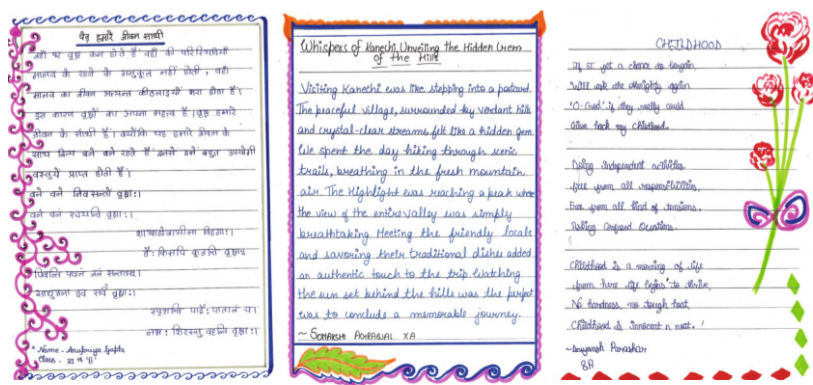 पेड़ हमारे जीवन साथी
जहाँ पर वृक्ष कम होते हैं वहाँ की परिस्थितियाँ
मानव के रहने के अनुकूल नहीं होती, वहाँ
मानव का जीवन अत्यन्त कठिनाइयों भरा होता है।
इस कारण वृक्षों का अपना महत्व है। वृक्ष हमारे
जीवन के साथी हैं। क्योंकि यह हमारे जीवन के
साथ बने रहते हैं हमें बहुत उपयोगी
वस्तुयें प्राप्त होती हैं।
वने वने निवसन्तो वृक्षाः।
वने वने रचयन्ति वृक्षाः।
पिबन्ति पवनं जलं सन्ततम्।
साधुजना इव सर्वे वृक्षाः।
स्पृशन्ति पादैः पातालं च।
नभः शिरस्सु वहन्ति वृक्षाः।
Name - Gupta
Class - XI th 'B'
Whispers of Kanechi, Unveiling the Hidden Gem
of the Hills
Visiting Kanechi was like stepping into a postcard.
The peaceful village, surrounded by verdant hills
and crystal-clear streams, felt like a hidden gem.
We spent the day hiking through scenic
trails, breathing in the fresh mountain
air. The Highlight was reaching a peak where
the view of the entire valley was simply
breathtaking. Meeting the friendly locale
and savoring their traditional dishes added
an authentic touch to the trip. Watching
the sun set behind the hills was the perfect
was to conclude a memorable journey.
~ AGRAWAL XA
CHILDHOOD
If I get a chance to bargain,
Will ask the almighty again
'O-God' is they really could
Give back my Childhood.
Doing independent activities
free from all responsibilities,
Far from all kind of tensions,
Asking Questions.
Childhood is a morning of life
from here life begins to thrive,
No hardness, no tough
Childhood is innocent n neat.
~ Parashar
8A